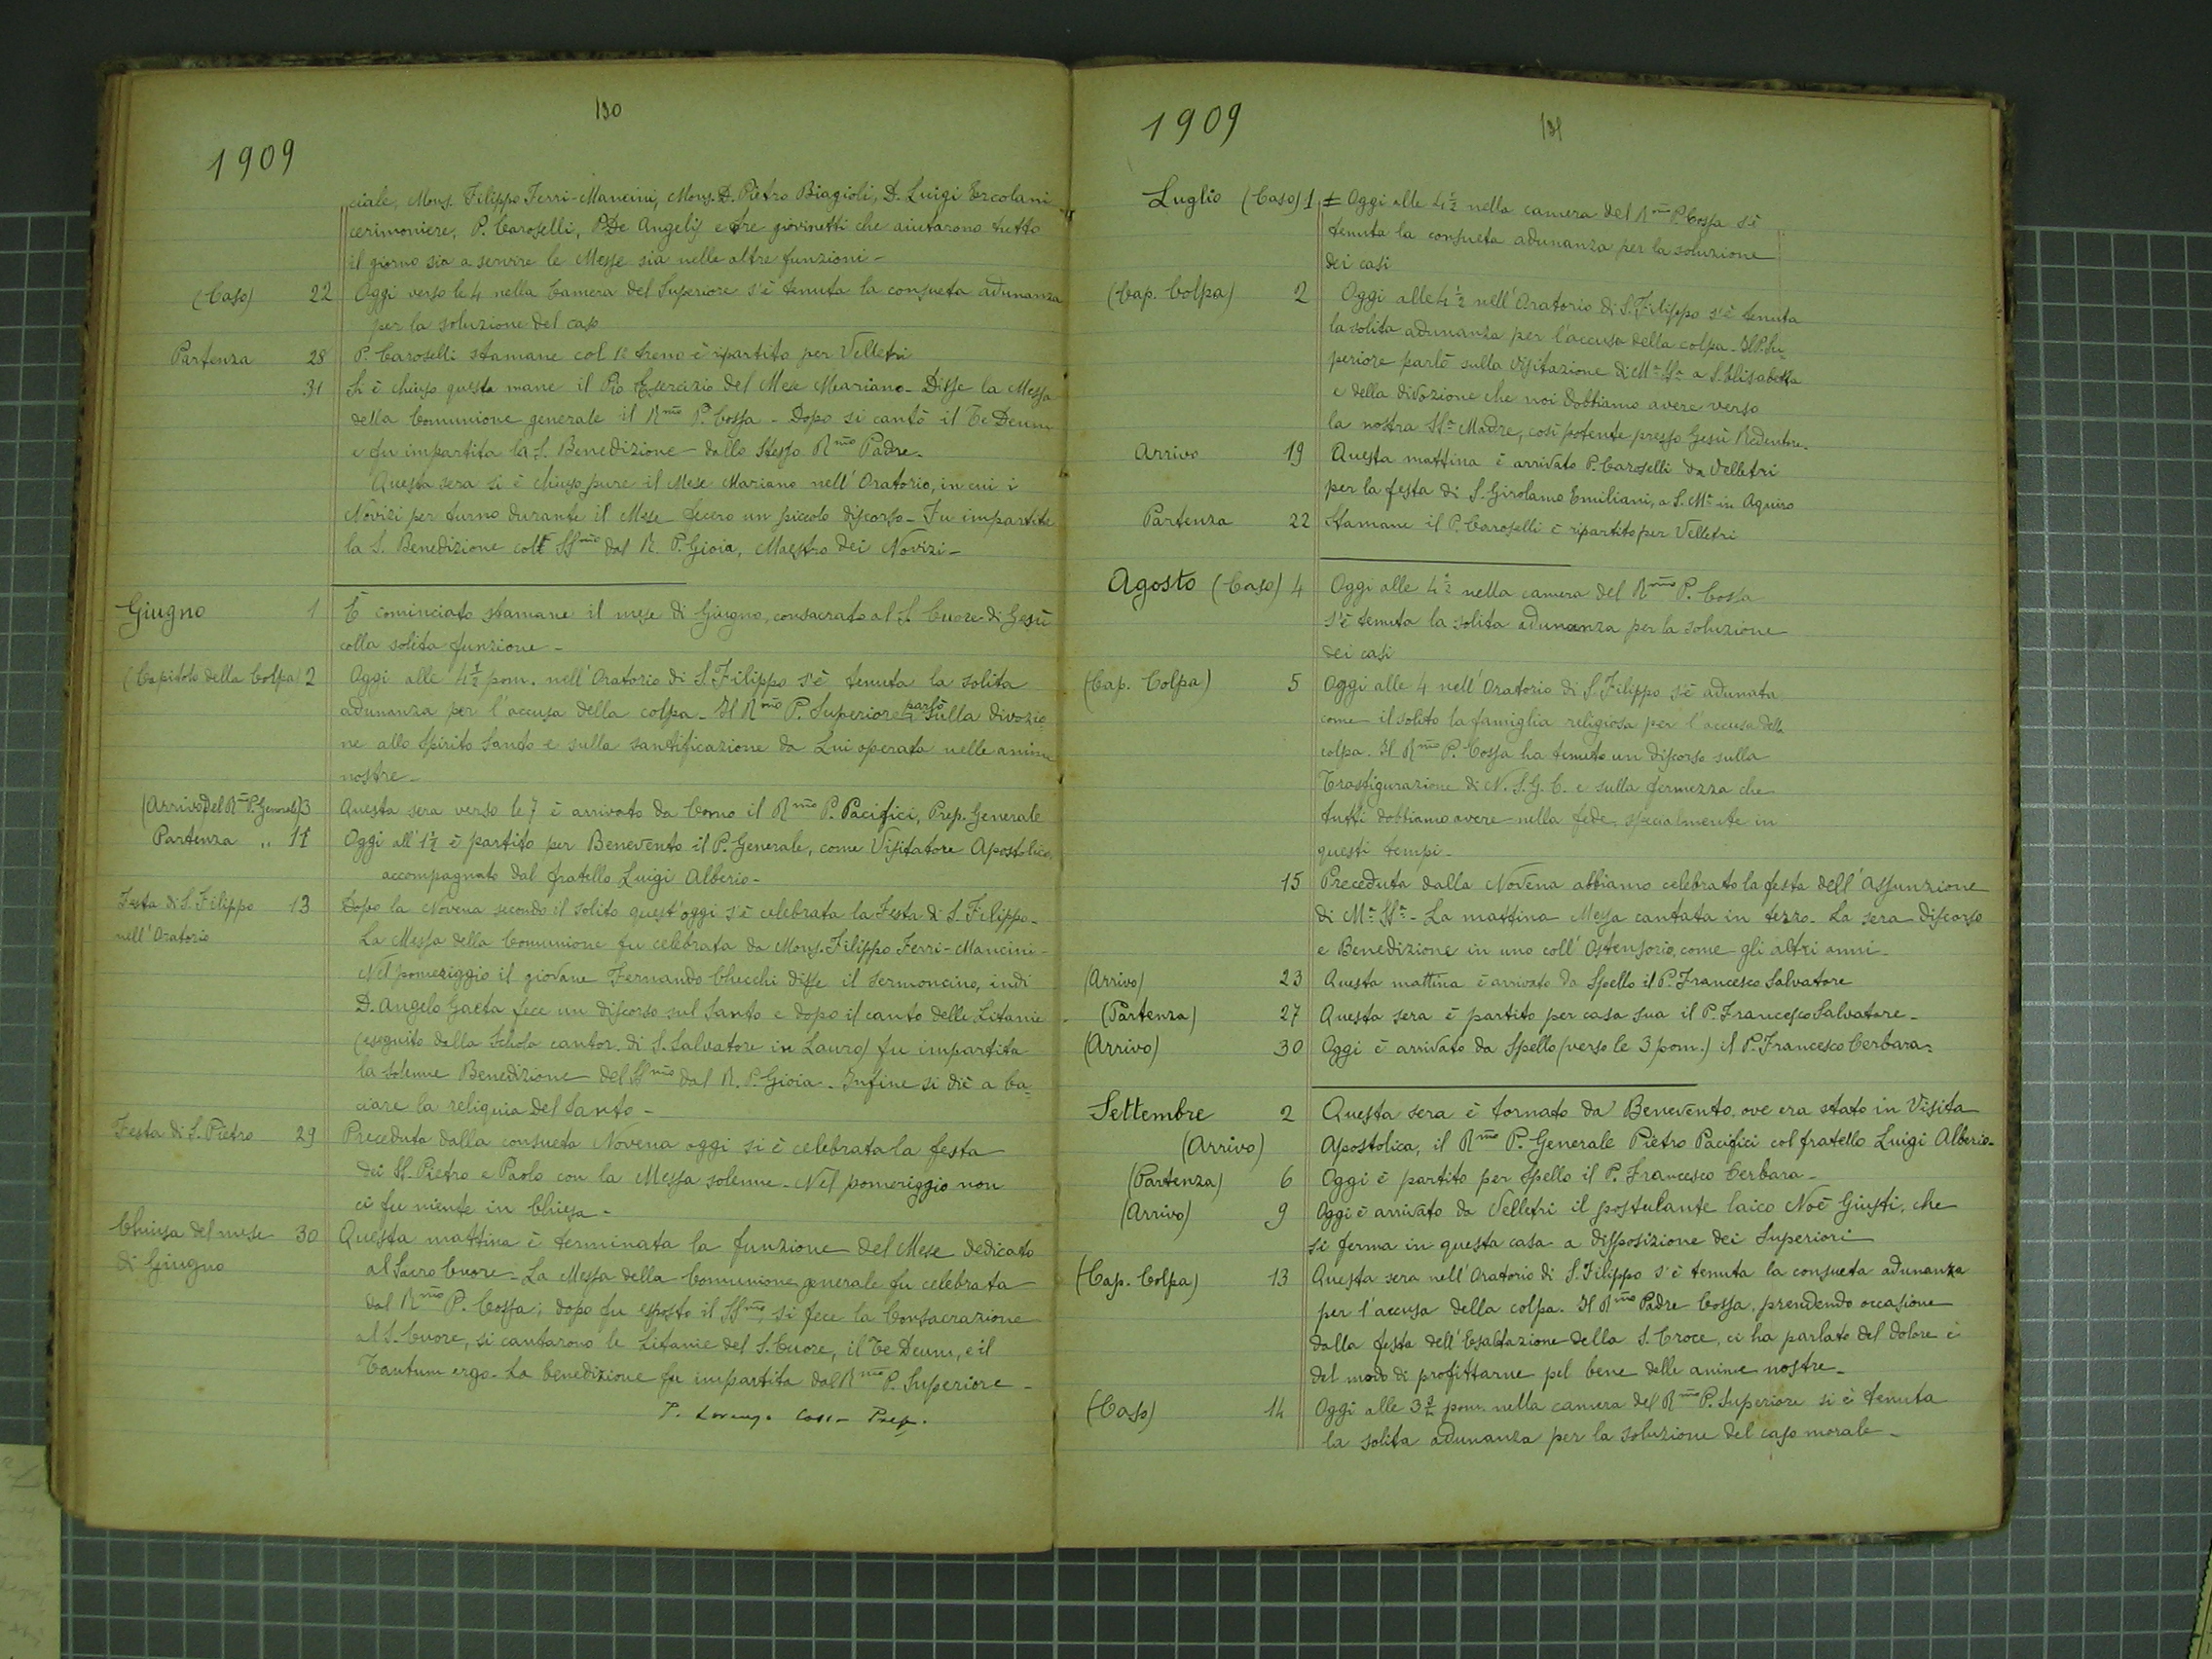 130
1909
ciale, Mons. Filippo Ferri-Mancini, Mons. D. Pietro Biagioli, D. Luigi Ercolani
cerimoniere, P. Caroselli, P. De Angelis e tre giovinetti che aiutarono tutto
il giorno sia a servire le Messe sia nelle altre funzioni -
(Caso) 22 Oggi verso le 4 nella Camera del Superiore s'è tenuta la consueta adunanza
per la soluzione del caso
Partenza 28 P. Caroselli stamane col 1º treno è ripartito per Velletri
31 Si è chiuso questa mane il Pio Esercizio del Mese Mariano - Disse la Messa
della Comunione generale il Rmo P. Cossa - Dopo si cantò il Te Deum
e fu impartita la S. Benedizione dallo stesso Rmo Padre.
Questa sera si è chiuso pure il Mese Mariano nell'Oratorio, in cui i
Novizi per turno durante il Mese fecero un piccolo discorso - Fu impartita
la S. Benedizione col SSmo dal R. P. Gioia, Maestro dei Novizi -
Giugno 1 È cominciato stamane il mese di Giugno, consacrato al S. Cuore di Gesù
colla solita funzione -
(Capitolo della Colpa) 2 Oggi alle 4½ pom. nell'Oratorio di S. Filippo s'è tenuta la solita
adunanza per l'accusa della colpa - Il Rmo P. Superiore parlò sulla divozio
ne allo Spirito Santo e sulla santificazione da Lui operata nelle anime
nostre -
(Arrivo del Rmo P. Generale) 3 Questa sera verso le 7 è arrivato da Como il Rmo P. Pacifici, Prep. Generale
Partenza " 11 Oggi all'1½ è partito per Benevento il P. Generale, come Visitatore Apostolico,
accompagnato dal fratello Luigi Alberio -
Festa di S. Filippo 13 Dopo la Novena secondo il solito quest'oggi s'è celebrata la Festa di S. Filippo -
nell'Oratorio
La Messa della Comunione fu celebrata da Mons. Filippo Ferri-Mancini -
Nel pomeriggio il giovane Fernando Checchi disse il sermoncino, indi
D. Angelo Gaeta fece un discorso sul Santo e dopo il canto delle Litanie
(eseguito dalla Schola cantor. di S. Salvatore in Lauro) fu impartita
la solenne Benedizione del SSmo dal R. P. Gioia. Infine si diè a ba=
ciare la reliquia del Santo -
Festa di S. Pietro 29 Preceduta dalla consueta Novena oggi si è celebrata la festa
dei SS. Pietro e Paolo con la Messa solenne - Nel pomeriggio non
ci fu niente in Chiesa -
Chiusa del mese 30 Questa mattina è terminata la funzione del Mese dedicato
di Giugno
al Sacro Cuore - La Messa della Comunione generale fu celebrata
dal Rmo P. Cossa; dopo fu esposto il SSmo, si fece la Consacrazione
al S. Cuore, si cantarono le Litanie del S. Cuore, il Te Deum, e il
Tantum ergo - La benedizione fu impartita dal Rmo P. Superiore -
P. Lorenzo Cossa Prep.
1909
131
Luglio (Caso) 1 Oggi alle 4½ nella camera del Rmo P. Cossa s'è
tenuta la consueta adunanza per la soluzione
dei casi
(Cap. Colpa) 2 Oggi alle 4½ nell'Oratorio di S. Filippo s'è tenuta
la solita adunanza per l'accusa della colpa - Il P. Su=
periore parlò sulla Visitazione di Ma SSa a S. Elisabetta
e della divozione che noi dobbiamo avere verso
la nostra SSa Madre, così potente presso Gesù Redentore.
Arrivo 19 Questa mattina è arrivato P. Caroselli da Velletri
per la festa di S. Girolamo Emiliani, a S. Ma in Aquiro
Partenza 22 Stamane il P. Caroselli è ripartito per Velletri
Agosto (Caso) 4 Oggi alle 4½ nella camera del Rmo P. Cossa
s'è tenuta la solita adunanza per la soluzione
dei casi
(Cap. Colpa) 5 Oggi alle 4 nell'Oratorio di S. Filippo s'è adunata
come il solito la famiglia religiosa per l'accusa della
colpa. Il Rmo P. Cossa ha tenuto un discorso sulla
Trasfigurazione di N. S. G. C. e sulla fermezza che
tutti dobbiamo avere nella fede, specialmente in
questi tempi -
15 Preceduta dalla Novena abbiamo celebrato la festa dell'Assunzione
di Ma SSa - La mattina Messa cantata in terzo - La sera discorso
e Benedizione in uno coll'Ostensorio, come gli altri anni -
(Arrivo) 23 Questa mattina è arrivato da Spello il P. Francesco Salvatore
(Partenza) 27 Questa sera è partito per casa sua il P. Francesco Salvatore -
(Arrivo) 30 Oggi è arrivato da Spello (verso le 3 pom.) il P. Francesco Cerbara -
Settembre 2 Questa sera è tornato da Benevento, ove era stato in Visita
(Arrivo) Apostolica, il Rmo P. Generale Pietro Pacifici col fratello Luigi Alberio -
(Partenza) 6 Oggi è partito per Spello il P. Francesco Cerbara -
(Arrivo) 9 Oggi è arrivato da Velletri il postulante laico Noè Giusti, che
si ferma in questa casa a disposizione dei Superiori
(Cap. Colpa) 13 Questa sera nell'Oratorio di S. Filippo s'è tenuta la consueta adunanza
per l'accusa della colpa. Il Rmo Padre Cossa, prendendo occasione
dalla festa dell'Esaltazione della S. Croce, ci ha parlato del dolore e
del modo di profittarne pel bene delle anime nostre -
(Caso) 14 Oggi alle 3½ pom. nella camera del Rmo P. Superiore si è tenuta
la solita adunanza per la soluzione del caso morale -